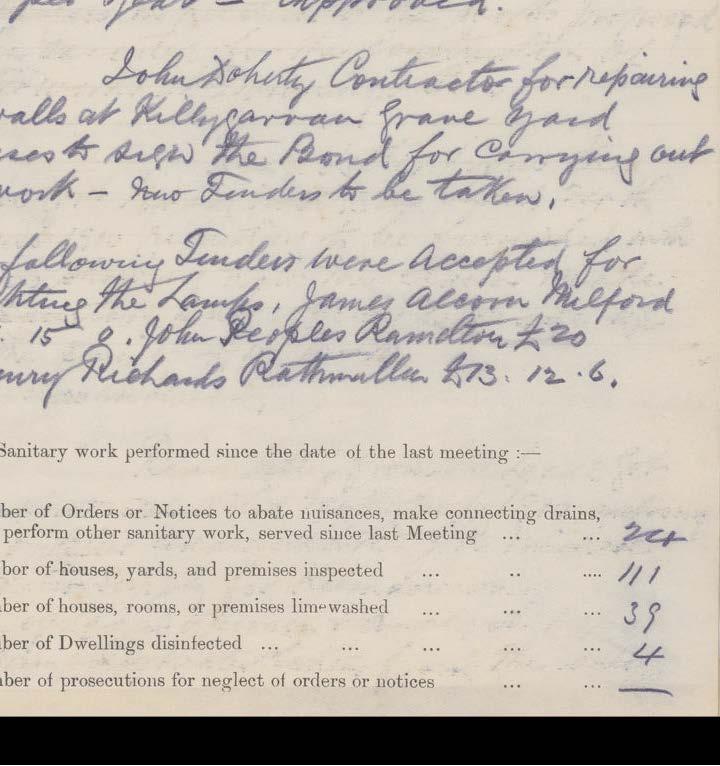 per year - approved.
John Doherty Contractor for repairing
walls at Killygarvan Grave Yard
ses to sign the Bond for carrying out
work - New Tenders to be taken.
following Tenders were accepted for
hting the Lamps, James Alcorn Milford
15 0. John Peoples Ramelton £20
enry Richards Rathmullan £13. 12. 6.
Sanitary work performed since the date of the last meeting :—
ber of Orders or Notices to abate nuisances, make connecting drains,
perform other sanitary work, served since last Meeting ... ... 24
bor of houses, yards, and premises inspected ... .. .... 111
ber of houses, rooms, or premises limewashed ... ... ... 39
ber of Dwellings disinfected ... ... ... ... ... 4
ber of prosecutions for neglect of orders or notices ... ... —